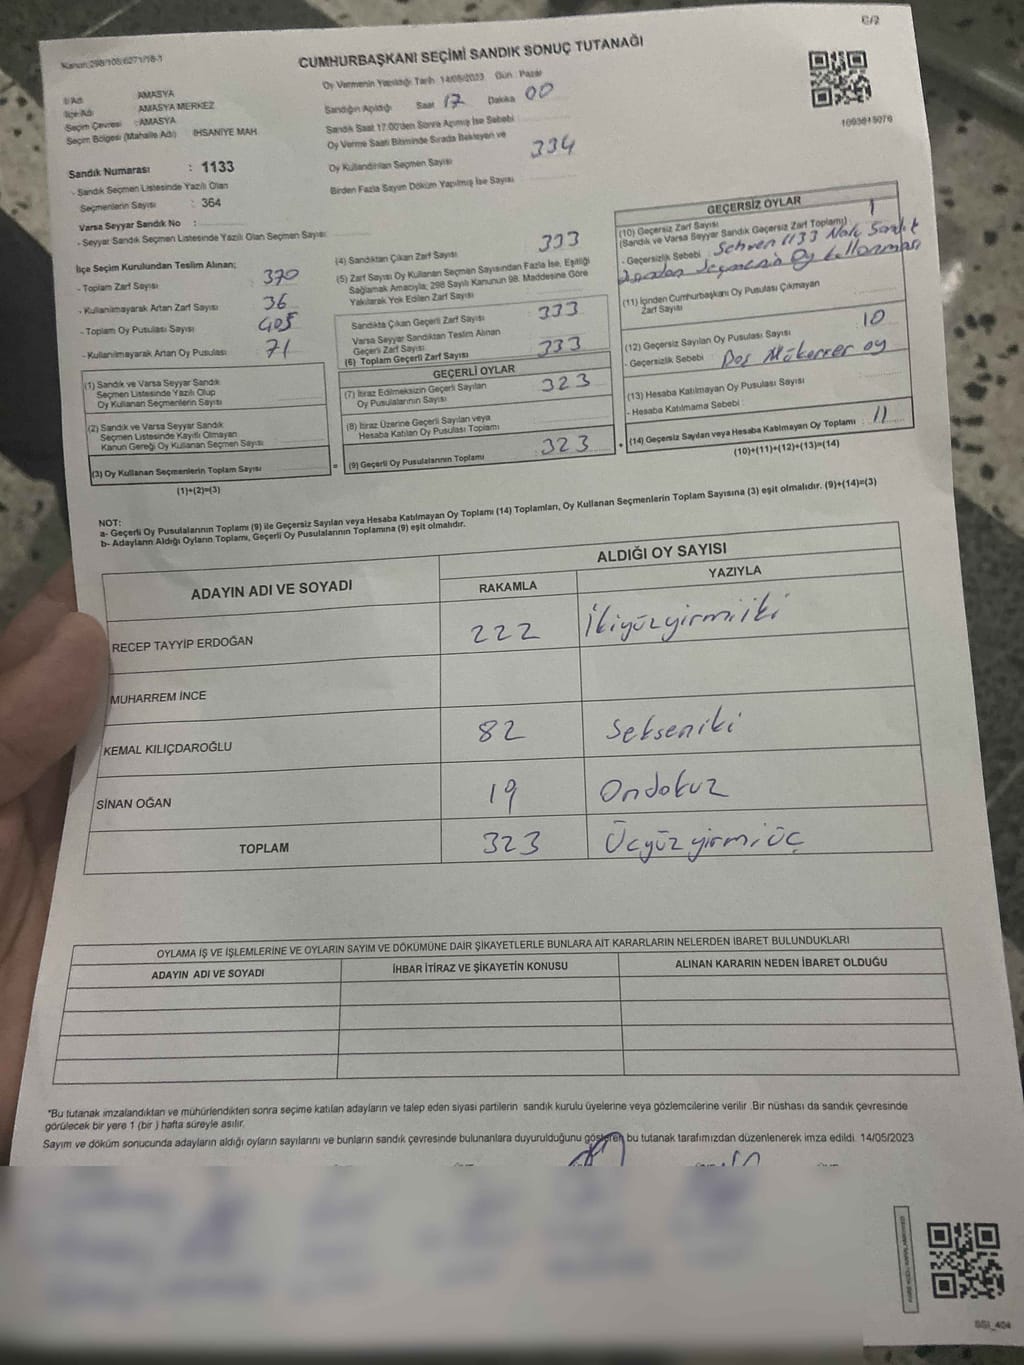 C/2
Kanun:298/105;6271/18-1
CUMHURBAŞKANI SEÇİMİ SANDIK SONUÇ TUTANAĞI
İl Adı : AMASYA
İlçe Adı : AMASYA MERKEZ
Seçim Çevresi : AMASYA
Seçim Bölgesi (Mahalle Adı) : İHSANİYE MAH.
Oy Vermenin Yapıldığı Tarih : 14/05/2023 Gün : Pazar
Sandığın Açıldığı Saat 17 Dakika 00
Sandık Saat 17:00'den Sonra Açılmış İse Sebebi
Oy Verme Saati Bitiminde Sırada Bekleyen ve
Oy Kullandırılan Seçmen Sayısı 334
Birden Fazla Sayım Döküm Yapılmış İse Sayısı
Sandık Numarası : 1133
- Sandık Seçmen Listesinde Yazılı Olan
Seçmenlerin Sayısı : 364
Varsa Seyyar Sandık No :
- Seyyar Sandık Seçmen Listesinde Yazılı Olan Seçmen Sayısı
İlçe Seçim Kurulundan Teslim Alınan;
- Toplam Zarf Sayısı : 370
- Kullanılmayarak Artan Zarf Sayısı : 36
- Toplam Oy Pusulası Sayısı : 405
- Kullanılmayarak Artan Oy Pusulası : 71
(1) Sandık ve Varsa Seyyar Sandık
Seçmen Listesinde Yazılı Olup
Oy Kullanan Seçmenlerin Sayısı
(2) Sandık ve Varsa Seyyar Sandık
Seçmen Listesinde Kayıtlı Olmayan
Kanun Gereği Oy Kullanan Seçmen Sayısı
(3) Oy Kullanan Seçmenlerin Toplam Sayısı
(1)+(2)=(3)
(4) Sandıktan Çıkan Zarf Sayısı : 333
(5) Zarf Sayısı Oy Kullanan Seçmen Sayısından Fazla İse, Eşitliği
Sağlamak Amacıyla; 298 Sayılı Kanunun 98. Maddesine Göre
Yakılarak Yok Edilen Zarf Sayısı
Sandıkta Çıkan Geçerli Zarf Sayısı : 333
Varsa Seyyar Sandıktan Teslim Alınan
Geçerli Zarf Sayısı
(6) Toplam Geçerli Zarf Sayısı : 333
GEÇERLİ OYLAR
(7) İtiraz Edilmeksizin Geçerli Sayılan
Oy Pusulalarının Sayısı : 323
(8) İtiraz Üzerine Geçerli Sayılan veya
Hesaba Katılan Oy Pusulası Toplamı
= (9) Geçerli Oy Pusulalarının Toplamı : 323
GEÇERSİZ OYLAR
(10) Geçersiz Zarf Sayısı 1
(Sandık ve Varsa Seyyar Sandık Geçersiz Zarf Toplamı)
- Geçersizlik Sebebi : 1133 Nolu Sandık
Seçmenin Oy kullanması
(11) İçinden Cumhurbaşkanı Oy Pusulası Çıkmayan
Zarf Sayısı
(12) Geçersiz Sayılan Oy Pusulası Sayısı : 10
- Geçersizlik Sebebi : Boş Mükerrer oy
(13) Hesaba Katılmayan Oy Pusulası Sayısı
- Hesaba Katılmama Sebebi :
+ (14) Geçersiz Sayılan veya Hesaba Katılmayan Oy Toplamı : 11
(10)+(11)+(12)+(13)=(14)
NOT:
a- Geçerli Oy Pusulalarının Toplamı (9) ile Geçersiz Sayılan veya Hesaba Katılmayan Oy Toplamı (14) Toplamları, Oy Kullanan Seçmenlerin Toplam Sayısına (3) eşit olmalıdır. (9)+(14)=(3)
b- Adayların Aldığı Oyların Toplamı, Geçerli Oy Pusulalarının Toplamına (9) eşit olmalıdır.
ADAYIN ADI VE SOYADI
ALDIĞI OY SAYISI
RAKAMLA YAZIYLA
RECEP TAYYİP ERDOĞAN 222 İkiyüzyirmiiki
MUHARREM İNCE
KEMAL KILIÇDAROĞLU 82 Sekseniki
SİNAN OĞAN 19 Ondokuz
TOPLAM 323 Üçyüzyirmiüç
OYLAMA İŞ VE İŞLEMLERİNE VE OYLARIN SAYIM VE DÖKÜMÜNE DAİR ŞİKAYETLERLE BUNLARA AİT KARARLARIN NELERDEN İBARET BULUNDUKLARI
ADAYIN ADI VE SOYADI İHBAR İTİRAZ VE ŞİKAYETİN KONUSU ALINAN KARARIN NEDEN İBARET OLDUĞU
*Bu tutanak imzalandıktan ve mühürlendikten sonra seçime katılan adayların ve talep eden siyasi partilerin sandık kurulu üyelerine veya gözlemcilerine verilir .Bir nüshası da sandık çevresinde
görülecek bir yere 1 (bir ) hafta süreyle asılır.
Sayım ve döküm sonucunda adayların aldığı oyların sayılarını ve bunların sandık çevresinde bulunanlara duyurulduğunu gösteren bu tutanak tarafımızdan düzenlenerek imza edildi. 14/05/2023